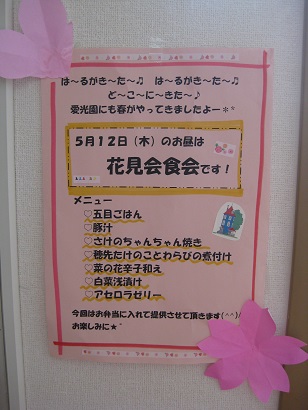 は～るがき～た～♫　は～るがき～た～♫
ど～こ～に～きた～♪
愛光園にも春がやってきましたよー＊*
５月１２日（木）のお昼は
花見会食会です！
メニュー
♡五目ごはん
♡豚汁
♡さけのちゃんちゃん焼き
♡穂先たけのことわらびの煮付け
♡菜の花辛子和え
♡白菜浅漬け
♡アセロラゼリー
今回はお弁当に入れて提供させて頂きます(^^)/
お楽しみに★*